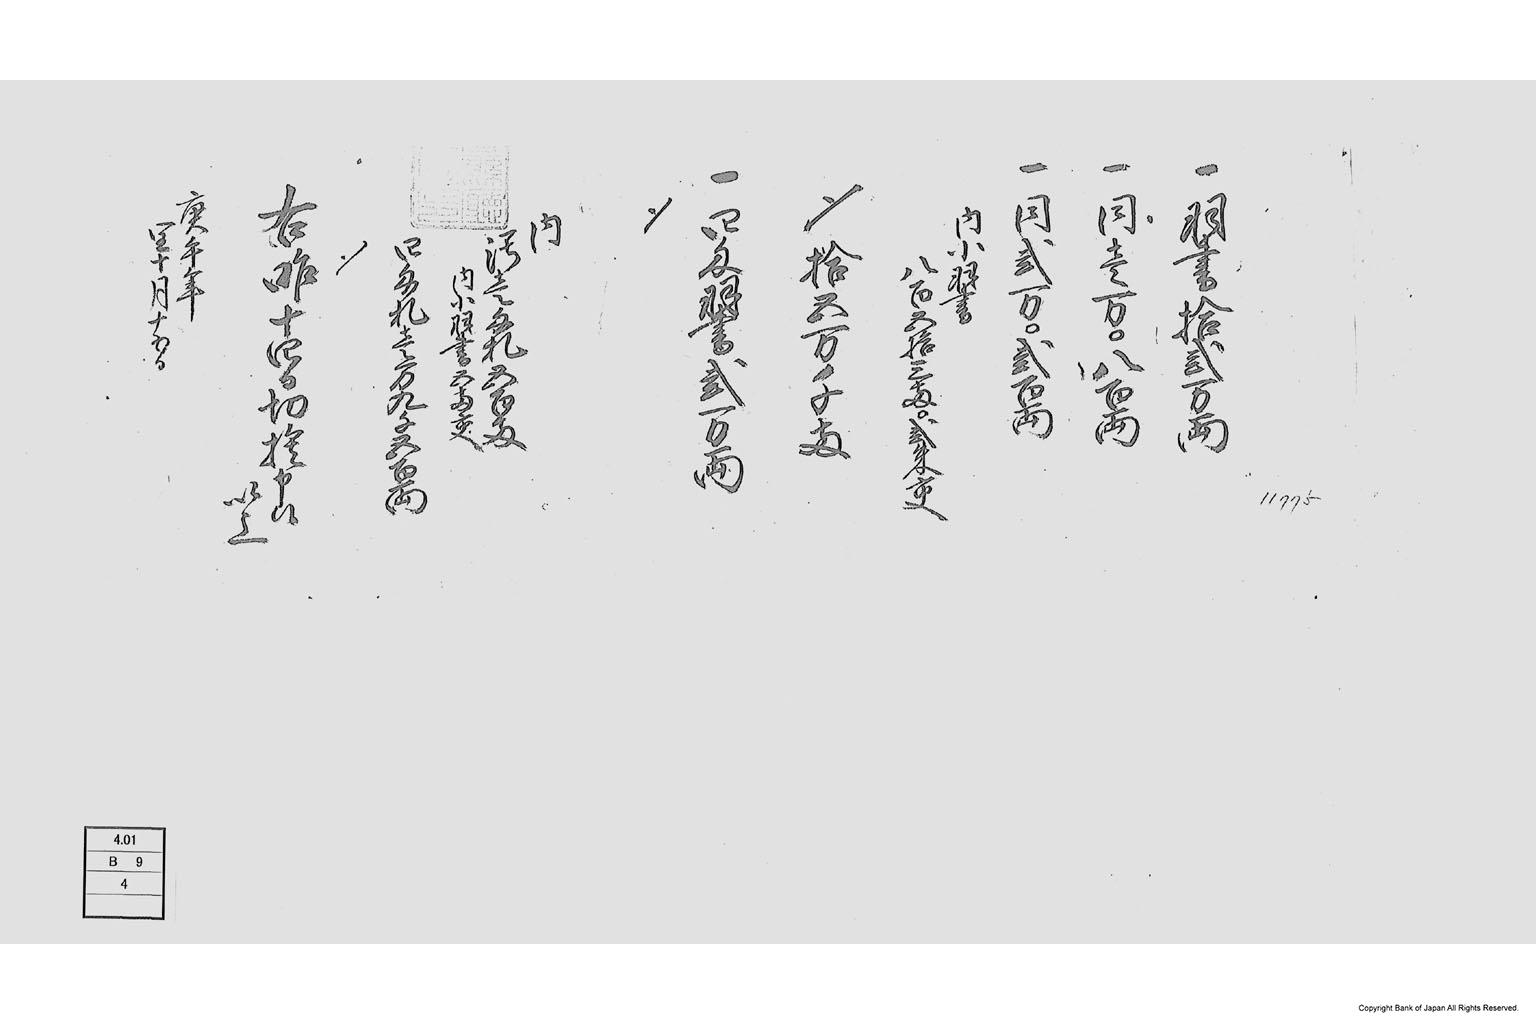 一 羽書拾弐万両
一 同壱万〇八百両
一 同弐万〇弐百両
内小羽書
八百五拾三両〇弐朱交
〆拾五万千両
一 四匁羽書弐万両
〆
内
壱匁札五百両
内小羽書五両交
四匁札壱万九千五百両
〆
右昨十四日切捨申候
以上
庚午年
閏十月十五日
11775
4.01
B 9
4
Copyright Bank of Japan All Rights Reserved.